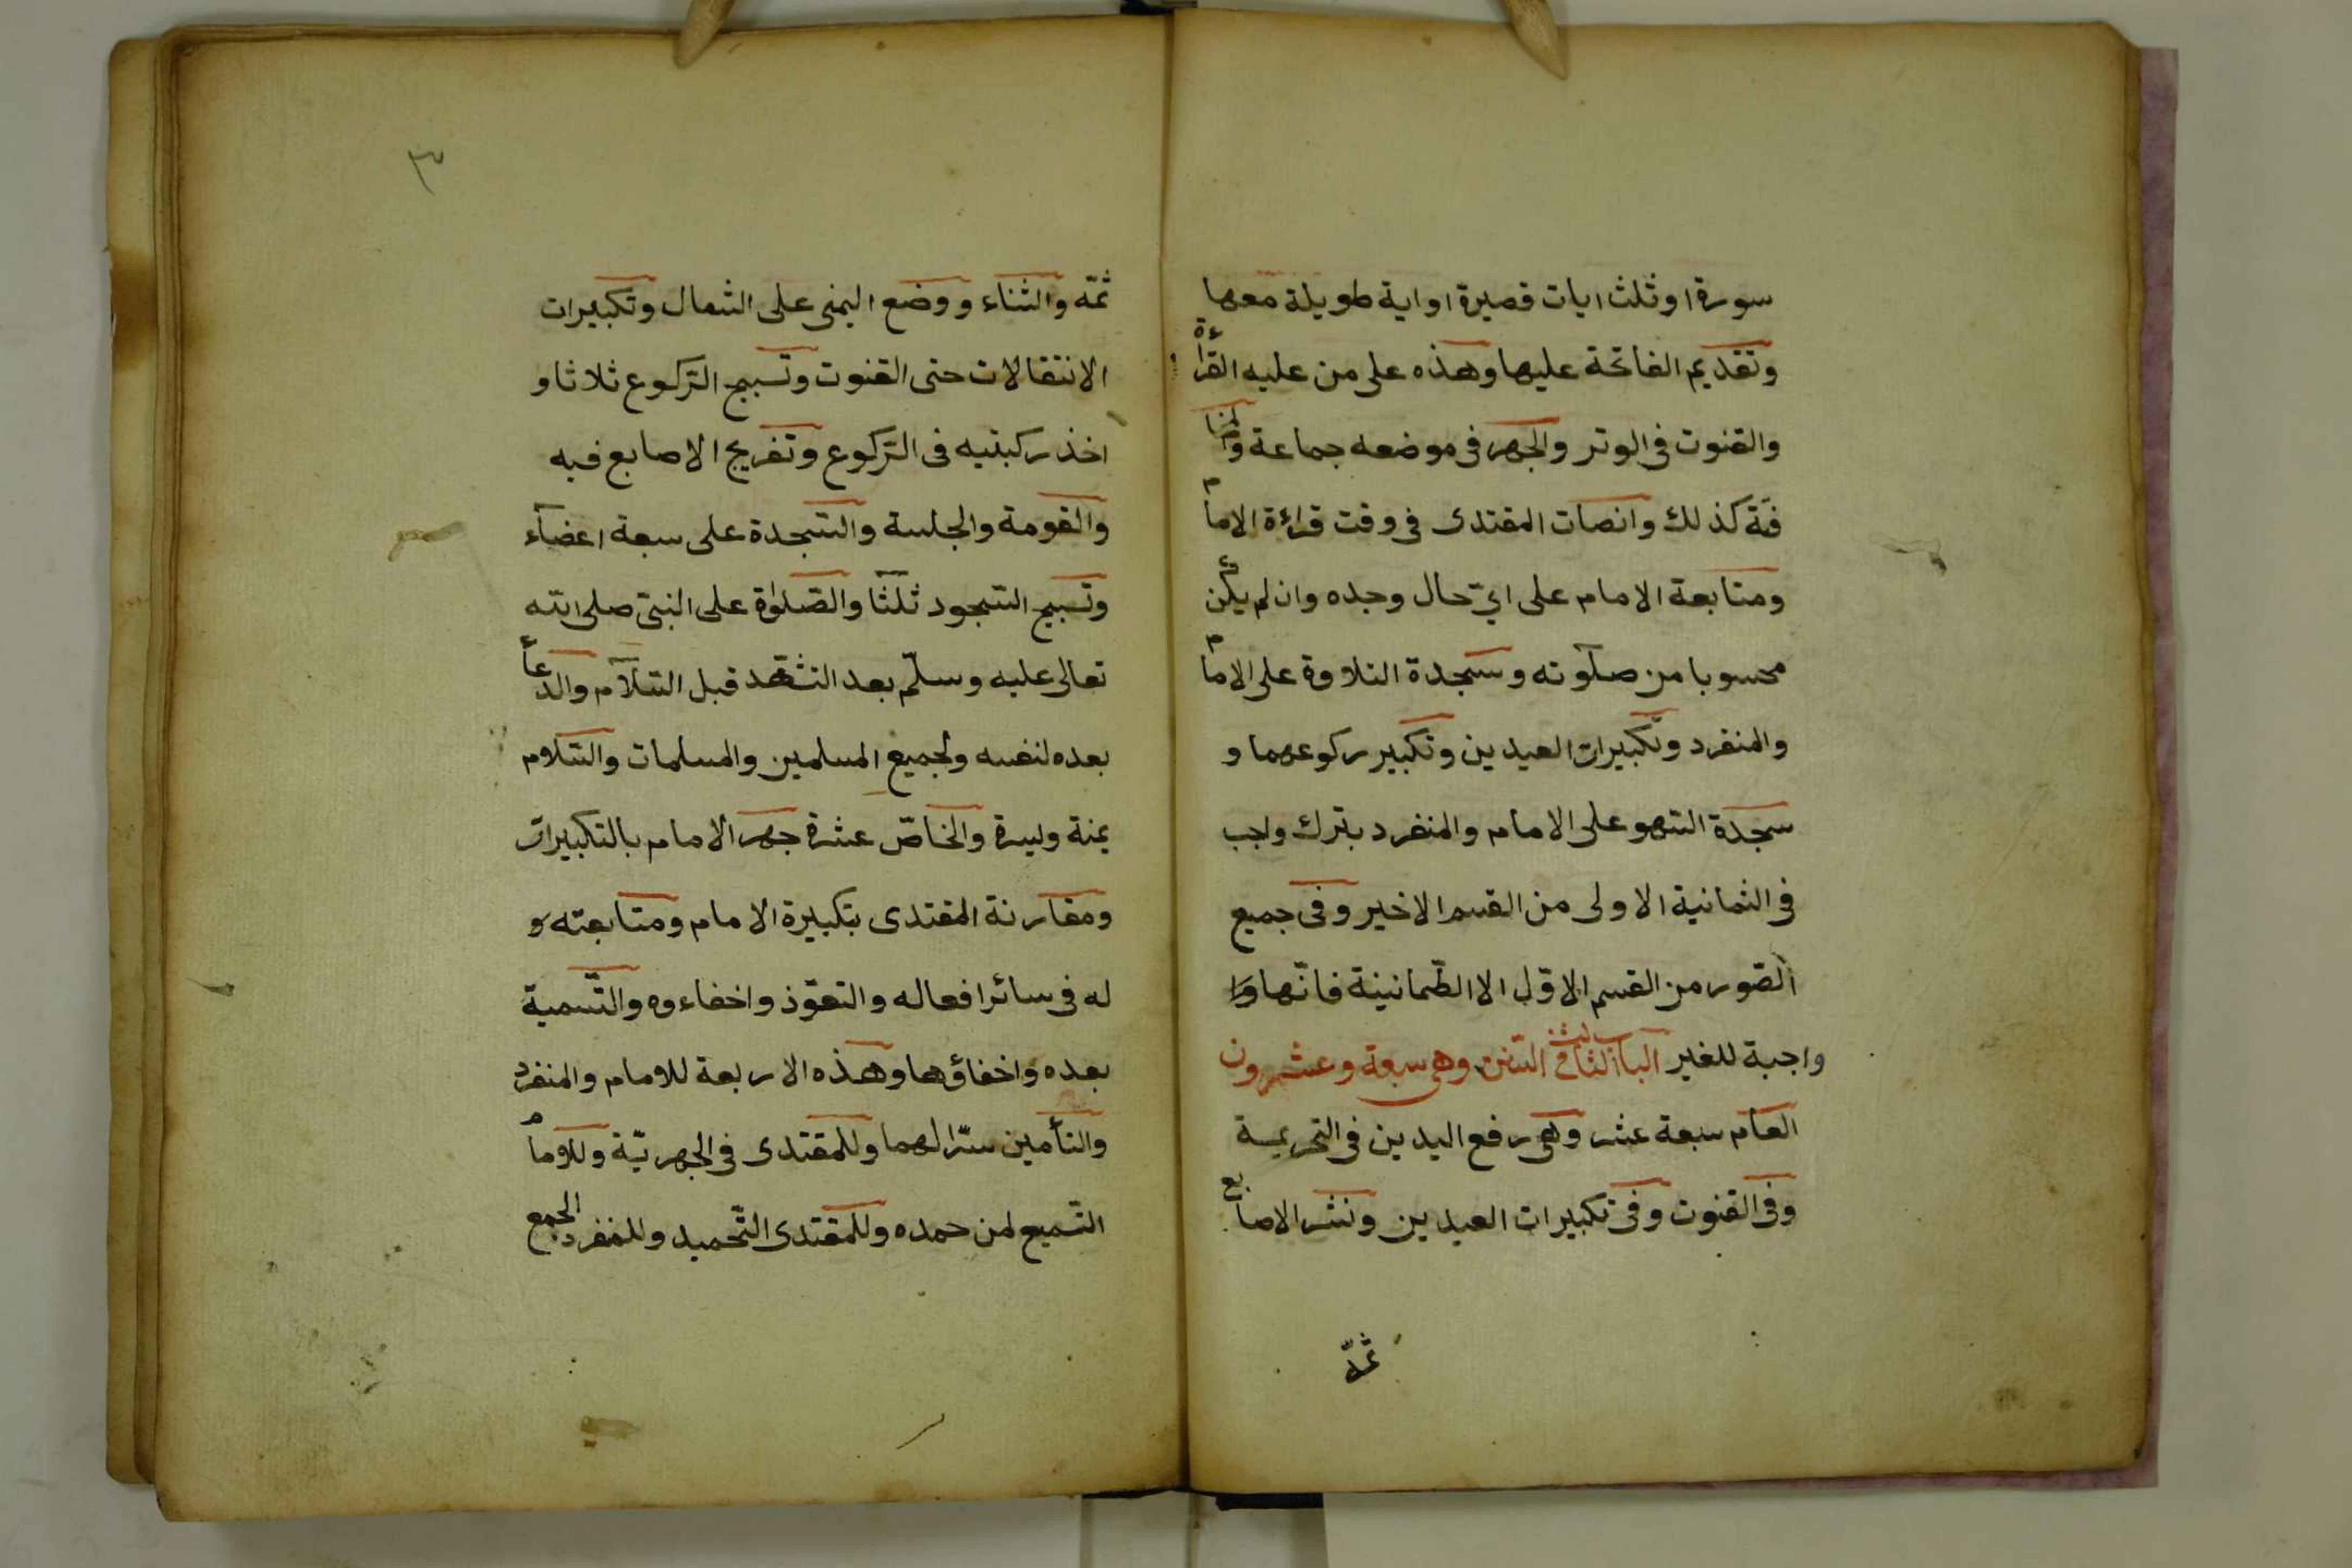 سورة او ثلث ايات قصيرة او اية طويلة معها
وتقديم الفاتحة عليها وهذه على من عليه القراءة
والقنوت فى الوتر والجهر فى موضعه جماعة والمخا
فتة كذلك وانصات المقتدى فى وقت قراءة الامام
ومتابعة الامام على اىّ حال وجده وان لم يكن
محسوبا من صلوته وسجدة التلاوة على الامام
والمنفرد وتكبيرات العيدين وتكبير ركوعهما و
سجدة السّهو على الامام والمنفرد بترك واجب
فى الثمانية الاولى من القسم الاخير وفى جميع
الصّور من القسم الاوّل الا الطّمانينة فانّها وا
واجبة للغير الباب الثالث فى السّنن وهى سبعة وعشرون
العام سبعة عشر وهى رفع اليدين فى التحريمة
وفى القنوت وفى تكبيرات العيدين ونشر الاصابع
ثمّه
٣
ثمّه والثناء ووضع اليمنى على الشمال وتكبيرات
الانتقالات حتى القنوت وتسبيح الرّكوع ثلاثا و
اخذ ركبتيه فى الرّكوع وتفريج الاصابع فيه
والقومة والجلسة والسّجدة على سبعة اعضآء
وتسبيح السّجود ثلثا والصّلوٰة على النبىّ صلى الله
تعالى عليه وسلّم بعد التشهّد قبل السّلام والدعاء
بعده لنفسه ولجميع المسلمين والمسلمات والسّلام
يمنة ويسرة والخاصّ عشرة جهر الامام بالتكبيرات
ومقارنة المقتدى بتكبيرة الامام ومتابعته و
له فى سائر افعاله والتعوّذ واخفاءوه والتّسمية
بعده واخفاؤها وهذه الاربعة للامام والمنفرد
والتأمين سرّا لهما وللمقتدى فى الجهريّة وللامام
التّسميع لمن حمده وللمقتدى التّحميد وللمنفرد الجمع